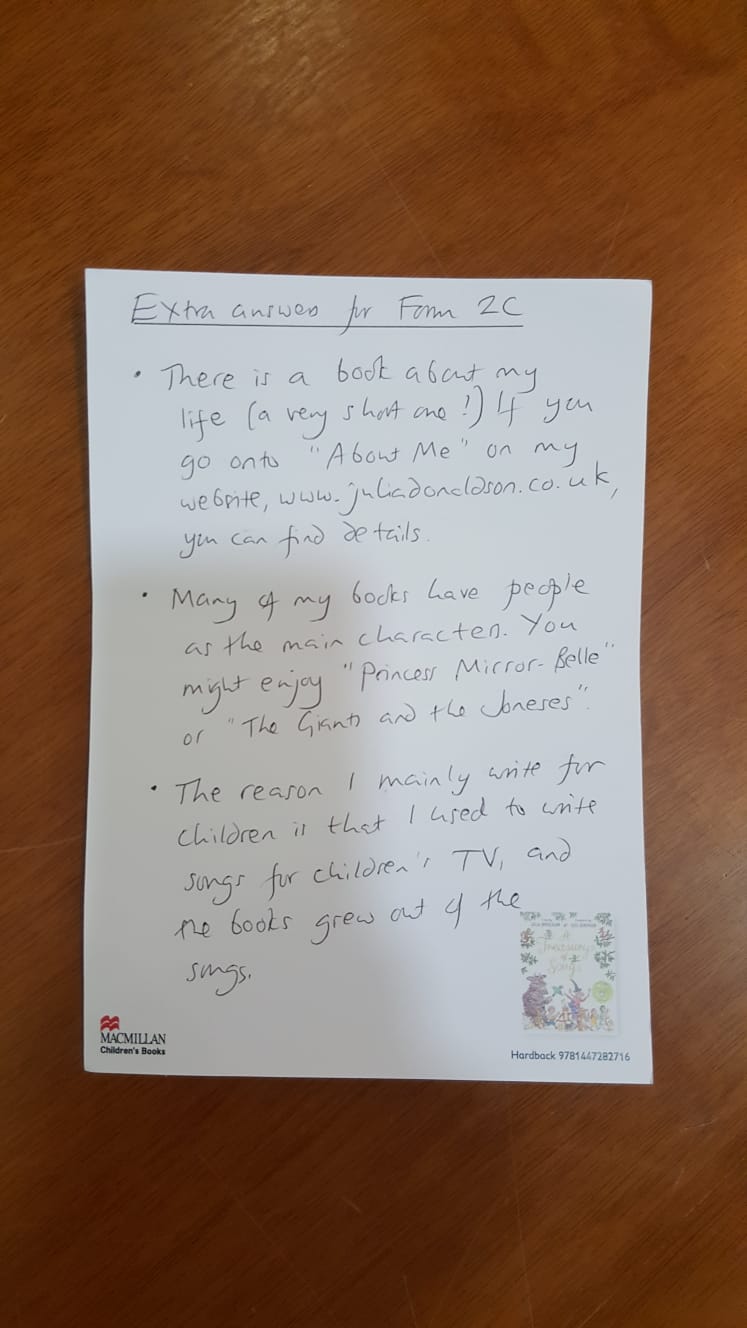 Extra answers for Form 2C
• There is a book about my
life (a very short one!) If you
go onto "About Me" on my
website, www.juliadonaldson.co.uk,
you can find details.
• Many of my books have people
as the main characters. You
might enjoy "Princess Mirror-Belle"
or "The Giants and the Joneses".
• The reason I mainly write for
children is that I used to write
songs for children's TV, and
the books grew out of the
songs.
A
Treasury
of
Songs
MACMILLAN
Children's Books
Hardback 9781447282716